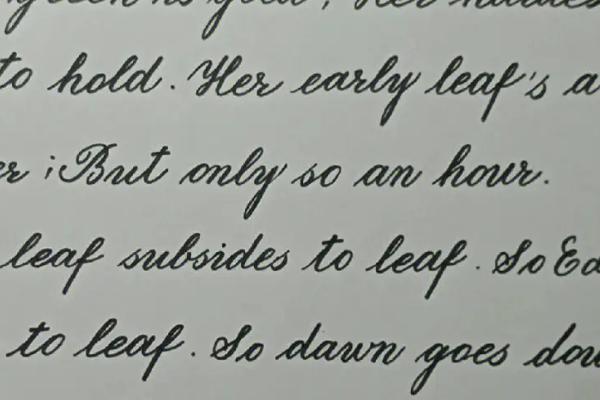 green is gold , Her
to hold . Her early leaf's a
er ; But only so an hour.
leaf subsides to leaf . So Ed
to leaf . So dawn goes dow